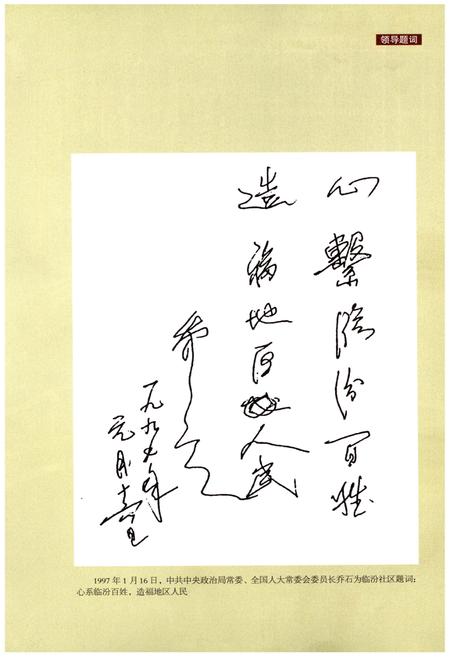 领导题词
心繫临汾百姓
造福地区人民
乔石
一九九七年
元月十六日
1997 年 1 月 16 日，中共中央政治局常委、全国人大常委会委员长乔石为临汾社区题词：
心系临汾百姓，造福地区人民